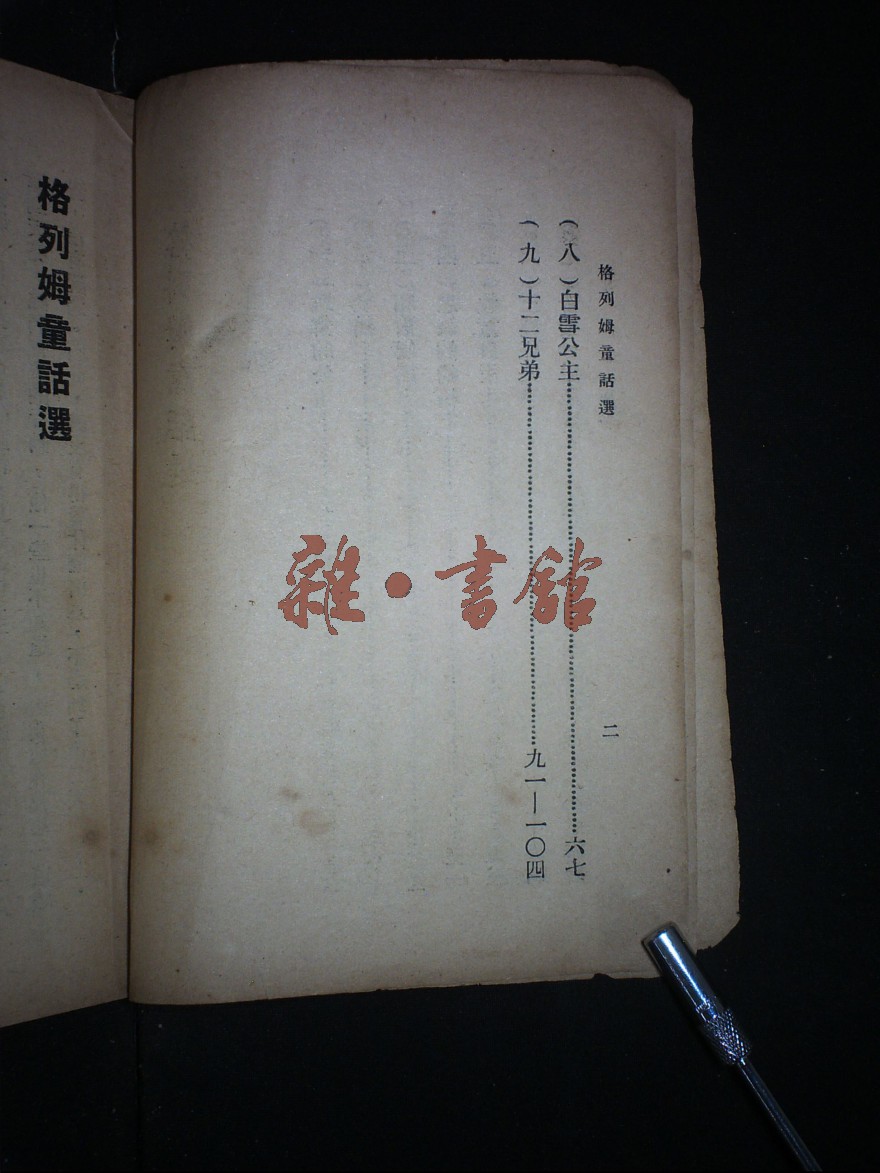 格列姆童話選
二
(八)白雪公主……六七
(九)十二兄弟……九一—一〇四
格列姆童話選
雜·書館